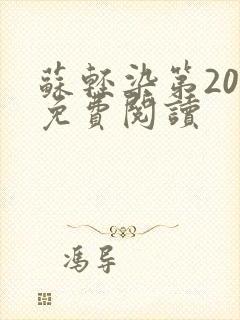 蘇輕染第20
免費閱讀
馮导